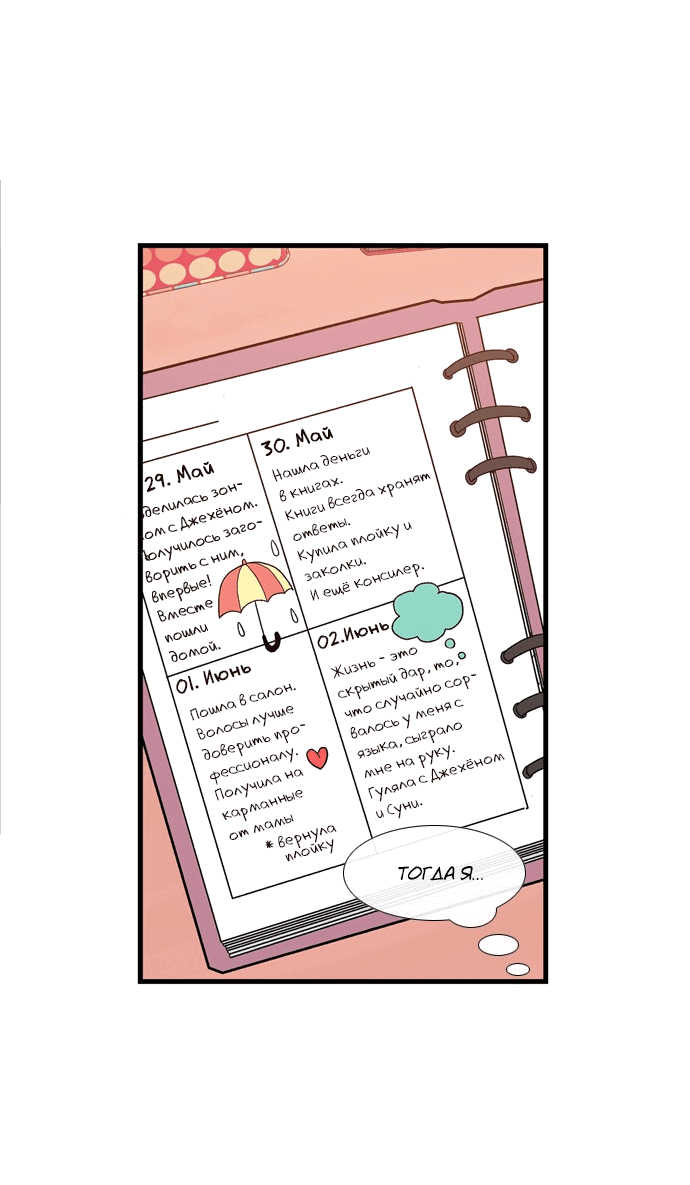 29. Май
делилась зон-
ом с Джехёном.
олучилось заго-
ворить с ним,
впервые!
Вместе
пошли
домой.
30. Май
Нашла деньги
в книгах.
Книги всегда хранят
ответы.
Купила плойку и
заколки.
И ещё консилер.
01. Июнь
Пошла в салон.
Волосы лучше
доверить про-
фессионалу.
Получила на
карманные
от мамы
* вернула
плойку
02.Июнь
Жизнь - это
скрытый дар, то,
что случайно сор-
валось у меня с
языка, сыграло
мне на руку.
Гуляла с Джехёном
и Суни.
ТОГДА Я...